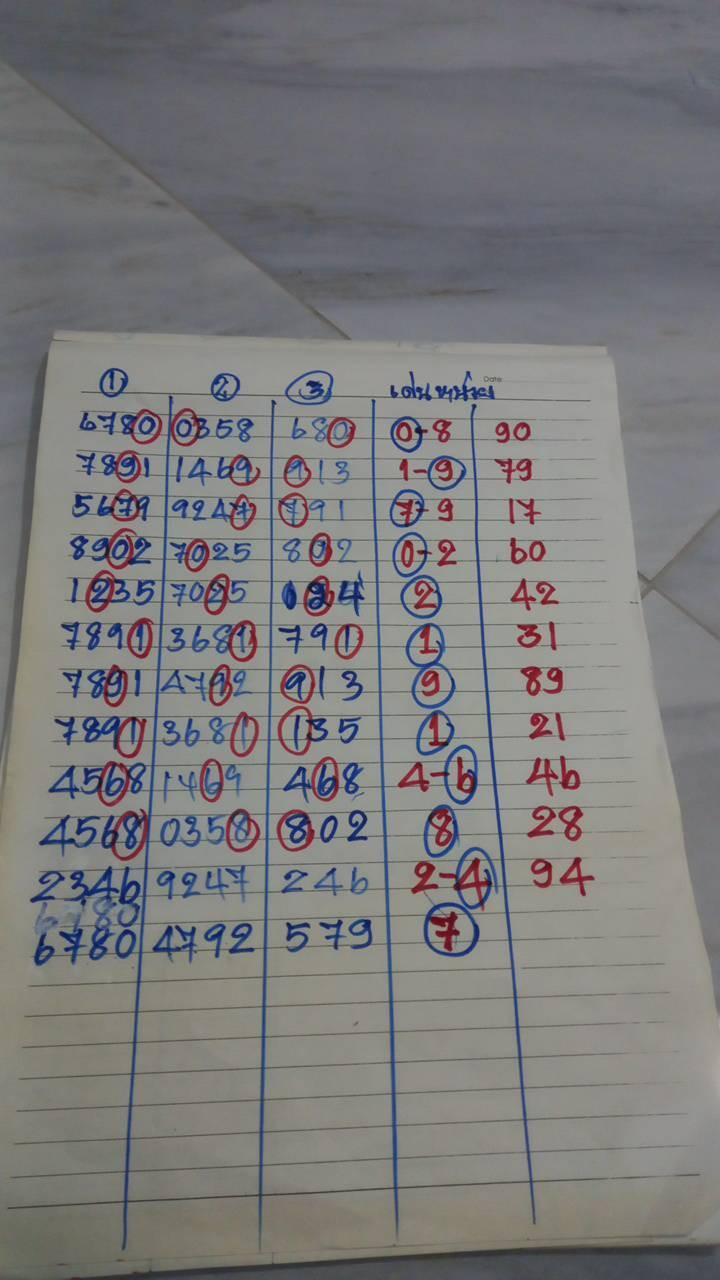 ① ② ③ เด่นหน่วย Date
6780 0358 680 0-8 90
7891 1469 913 1-9 79
5679 9247 791 7-9 17
8902 7025 802 0-2 60
1235 7025 024 2 42
7891 3681 791 1 31
7891 4792 913 9 89
7891 3681 135 1 21
4568 1469 468 4-6 46
4568 0358 802 8 28
2346 9247 246 2-4 94
6780
6780 4792 579 7